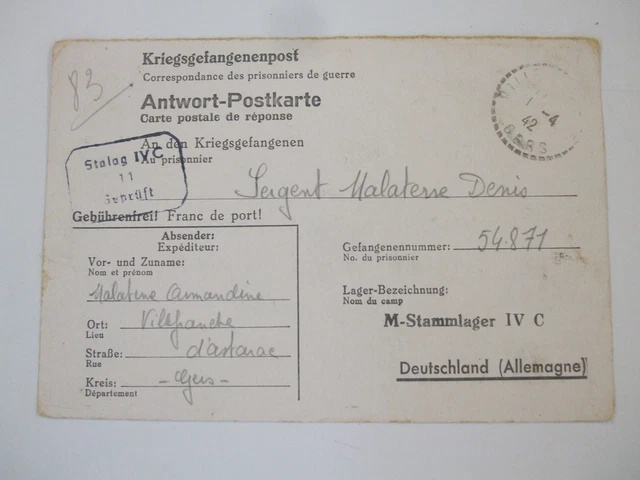 83
Kriegsgefangenenpost
Correspondance des prisonniers de guerre
Antwort-Postkarte
Carte postale de réponse
An den Kriegsgefangenen
Au prisonnier
Stalag IV C
11
Geprüft
1 -4
42
GERS
Sergent Malaterre Denis
Gebührenfrei! Franc de port!
Absender:
Expéditeur:
Vor- und Zuname:
Nom et prénom
Malaterre Armandine
Ort: Villefranche
Lieu
Straße: d'astarac
Rue
Kreis: - Gers -
Département
Gefangenennummer: 54.871
No. du prisonnier
Lager-Bezeichnung:
Nom du camp
M-Stammlager IV C
Deutschland (Allemagne)